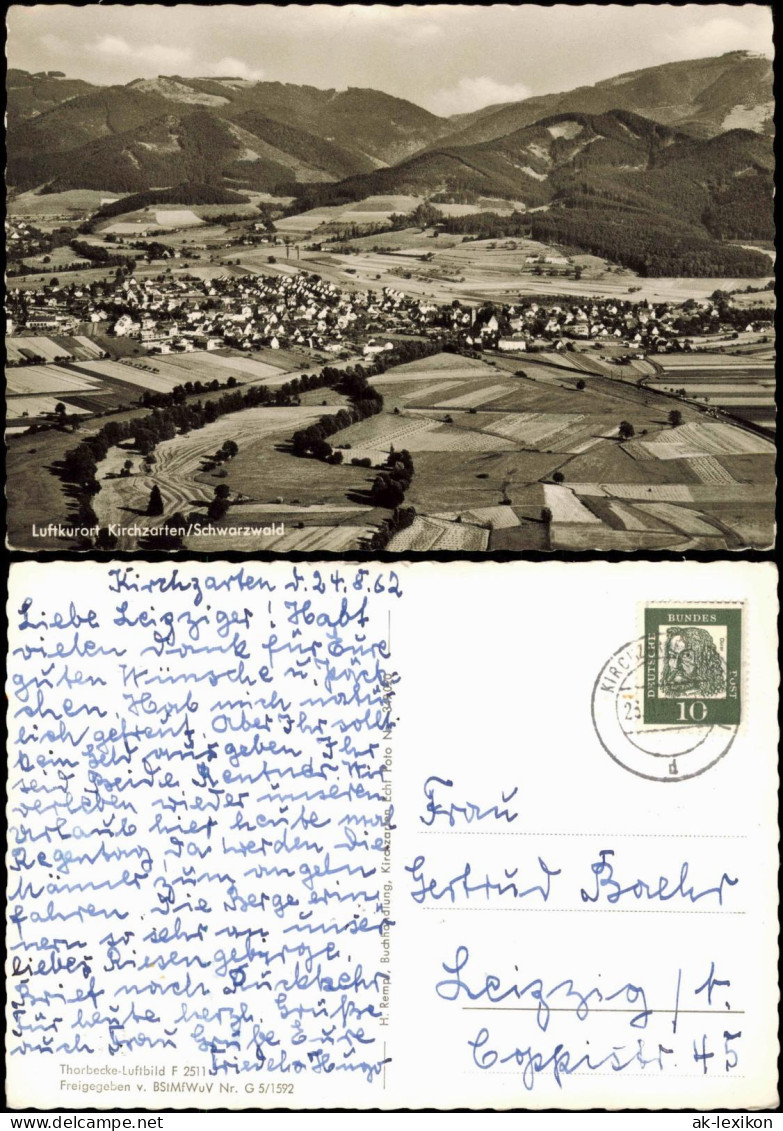 Luftkurort Kirchzarten/Schwarzwald
Kirchzarten d. 24.8.62
Liebe Leipziger! Habt
vielen Dank für Eure
guten Wünsche u. Päck-
chen Hab mich natür
lich gefreut. Aber Ihr sollt
kein Geld ausgeben Ihr
seid Beide Rentner. Wir
verleben wieder unseren
Urlaub hier heute mal
Regentag, da werden die
Männer zum angeln
fahren. Die Berge erin
nern so sehr an unser
liebes Riesengebirge.
Brief nach Rückkehr
Für heute herzl. Grüße
auch Frau Grüße Eure
Friedel u. Hugo
Thorbecke-Luftbild F 2511
Freigegeben v. BStMfWuV Nr. G 5/1592
H. Rempf, Buchhandlung, Kirchzarten Echt Foto Nr.
DEUTSCHE BUNDES POST
10
KIRCHZARTEN
d
Frau
Gertrud Baehr
Leipzig / t.
Coppistr. 45
ak-lexikon